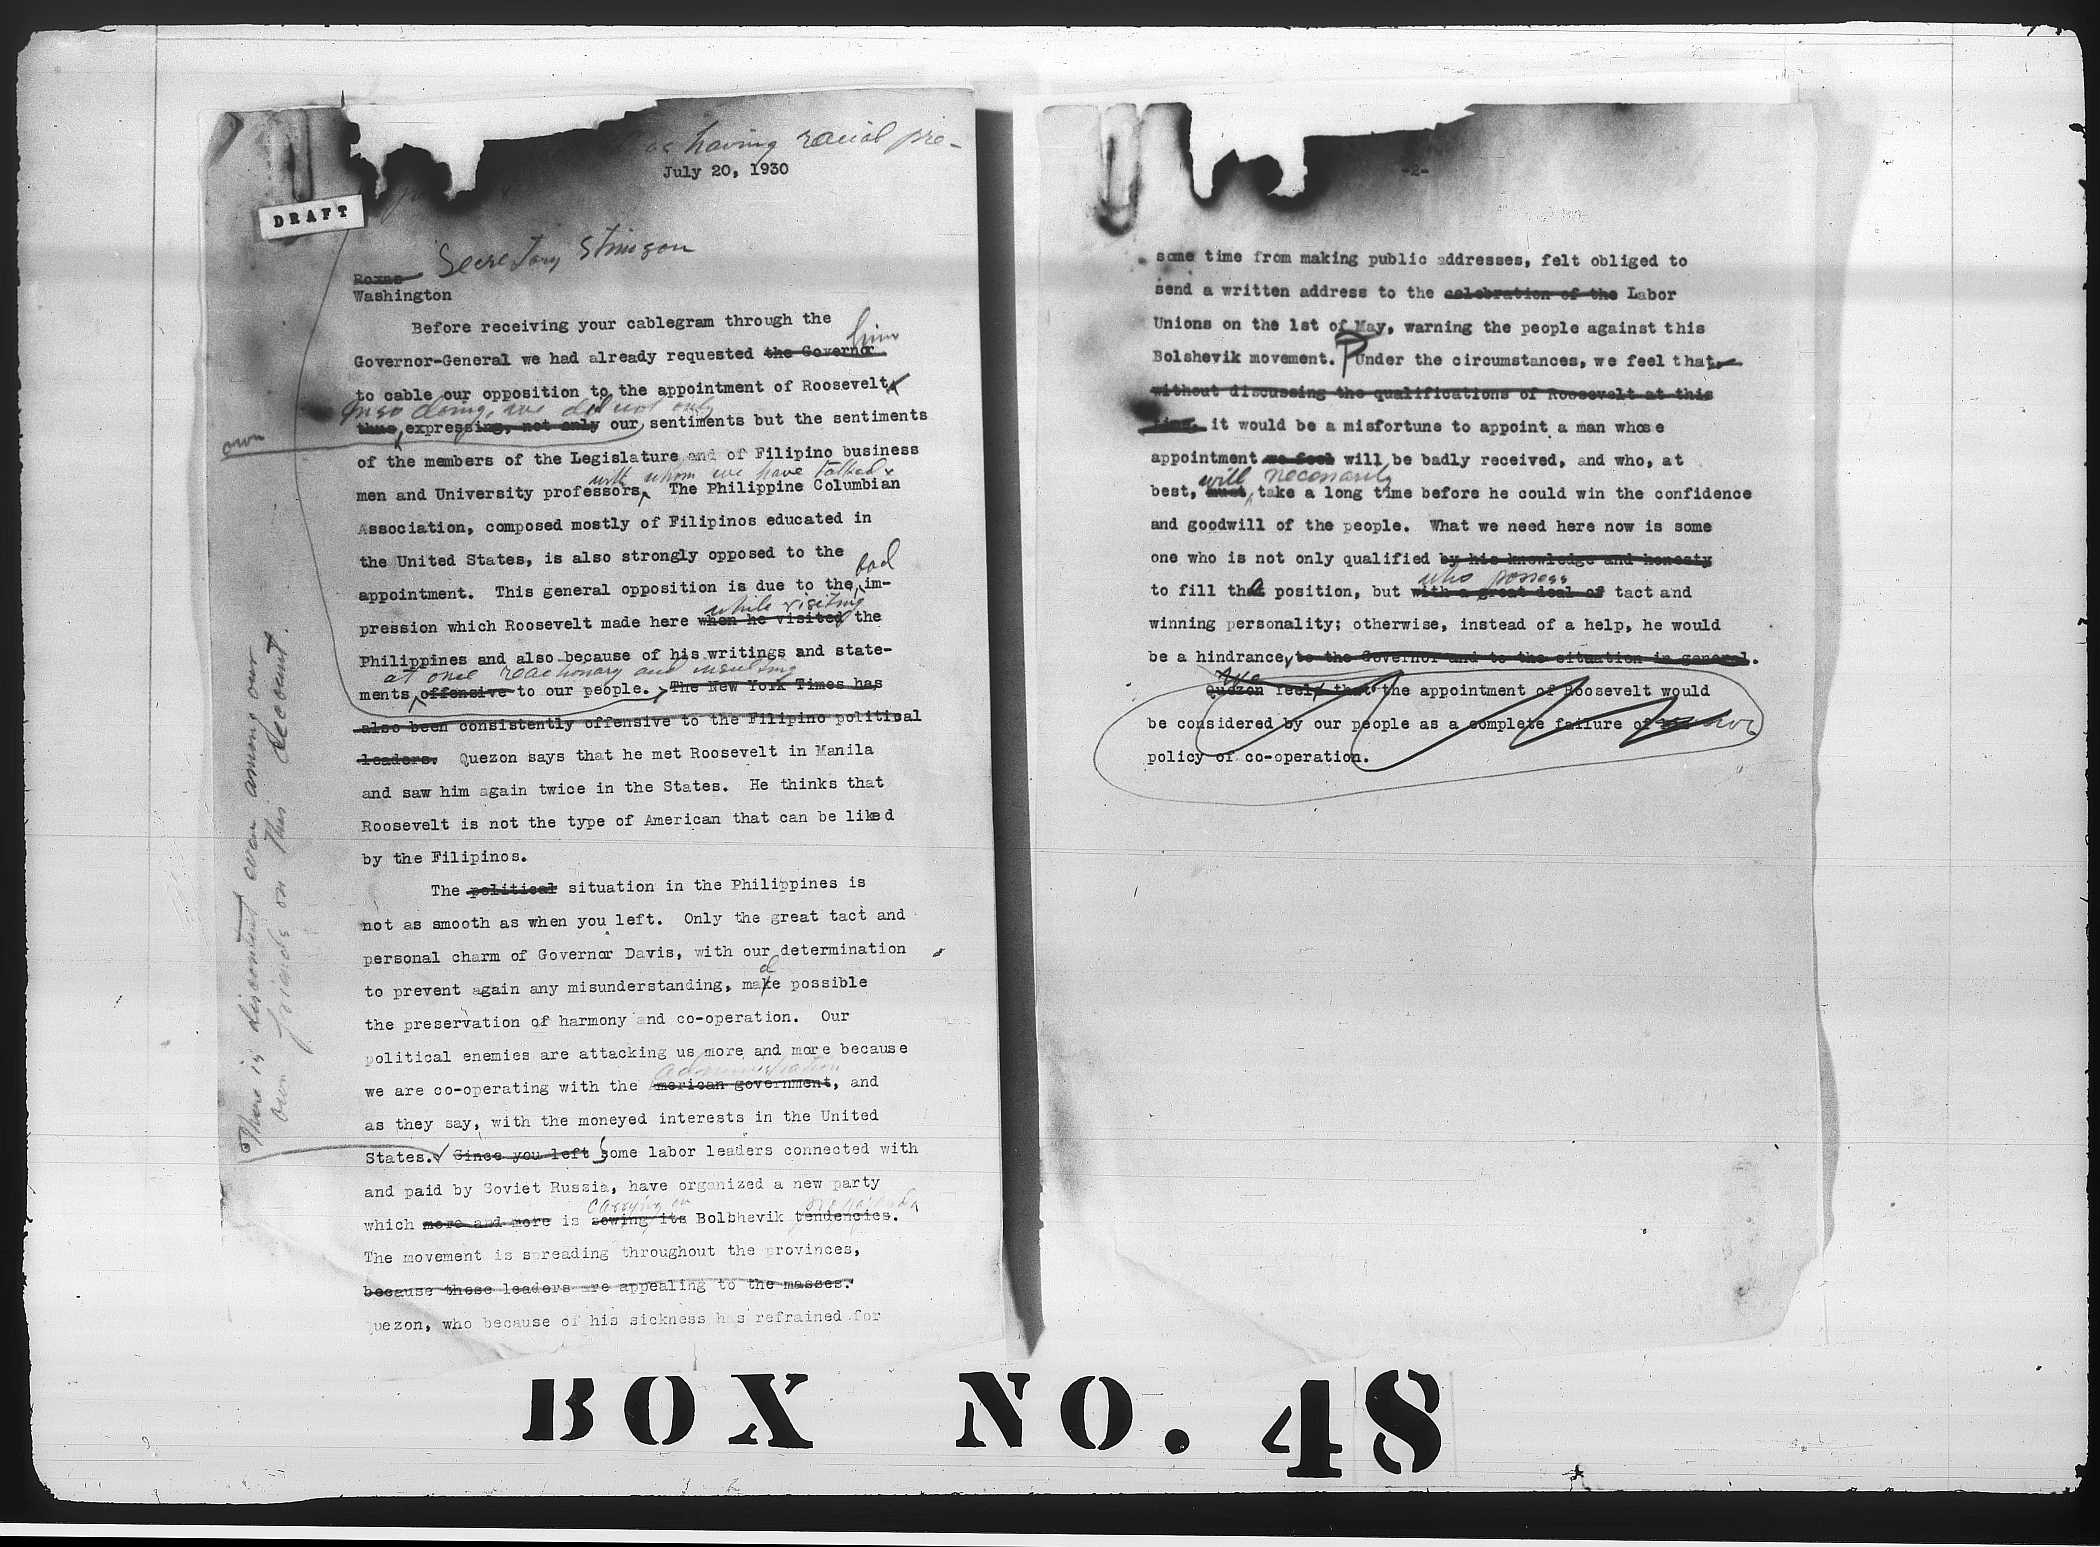 as having racial pre-
July 20, 1930
DRAFT
Roxas Secretary Stimson
Washington
Before receiving your cablegram through the
him
Governor-General we had already requested the Governor
to cable our opposition to the appointment of Roosevelt,
In so doing, we did not only
thus expressing, not only our sentiments but the sentiments
own
of the members of the Legislature and of Filipino business
with whom we have talked.
men and University professors. The Philippine Columbian
Association, composed mostly of Filipinos educated in
the United States, is also strongly opposed to the
bad
appointment. This general opposition is due to the im-
while visiting
pression which Roosevelt made here when he visited the
Philippines and also because of his writings and state-
at once reactionary and insulting
ments offensive to our people. The New York Times has
also been consistently offensive to the Filipino political
leaders. Quezon says that he met Roosevelt in Manila
and saw him again twice in the States. He thinks that
Roosevelt is not the type of American that can be liked
by the Filipinos.
The political situation in the Philippines is
not as smooth as when you left. Only the great tact and
personal charm of Governor Davis, with our determination
d
to prevent again any misunderstanding, make possible
the preservation of harmony and co-operation. Our
political enemies are attacking us more and more because
administration
we are co-operating with the American government, and
as they say, with the moneyed interests in the United
States. Since you left some labor leaders connected with
and paid by Soviet Russia, have organized a new party
carrying on propaganda
which more and more is sowing its Bolshevik tendencies.
The movement is spreading throughout the provinces,
because these leaders are appealing to the masses.
Quezon, who because of his sickness has refrained for
There is discontent even among our
own friends on this account.
-2-
some time from making public addresses, felt obliged to
send a written address to the celebration of the Labor
Unions on the 1st of May, warning the people against this
Bolshevik movement. Under the circumstances, we feel that,
without discussing the qualifications of Roosevelt at this
time, it would be a misfortune to appoint a man whose
appointment we feel will be badly received, and who, at
will necessarily
best, must take a long time before he could win the confidence
and goodwill of the people. What we need here now is some
one who is not only qualified by his knowledge and honesty
who possess
to fill the position, but with a great deal of tact and
winning personality; otherwise, instead of a help, he would
be a hindrance, to the Governor and to the situation in general.
We
Quezon feels that the appointment of Roosevelt would
be considered by our people as a complete failure of our
policy of co-operation.
BOX NO. 48